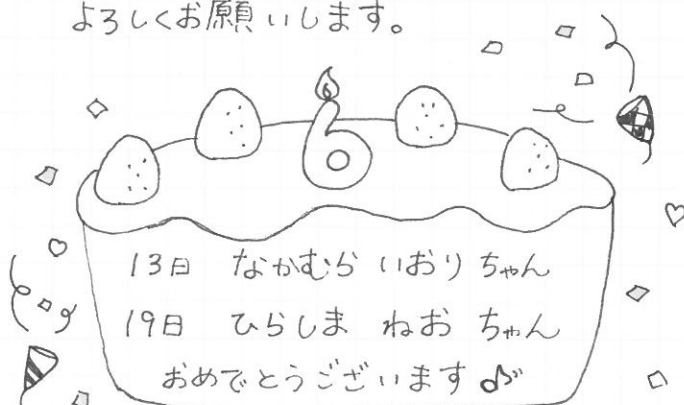 よろしくお願いします。
6
13日 なかむら いおり ちゃん
19日 ひらしま ねお ちゃん
おめでとうございます♫